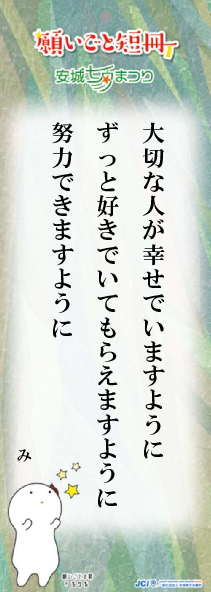 願いごと短冊
安城七夕まつり
大切な人が幸せでいますように
ずっと好きでいてもらえますように
努力できますように
み
JCI